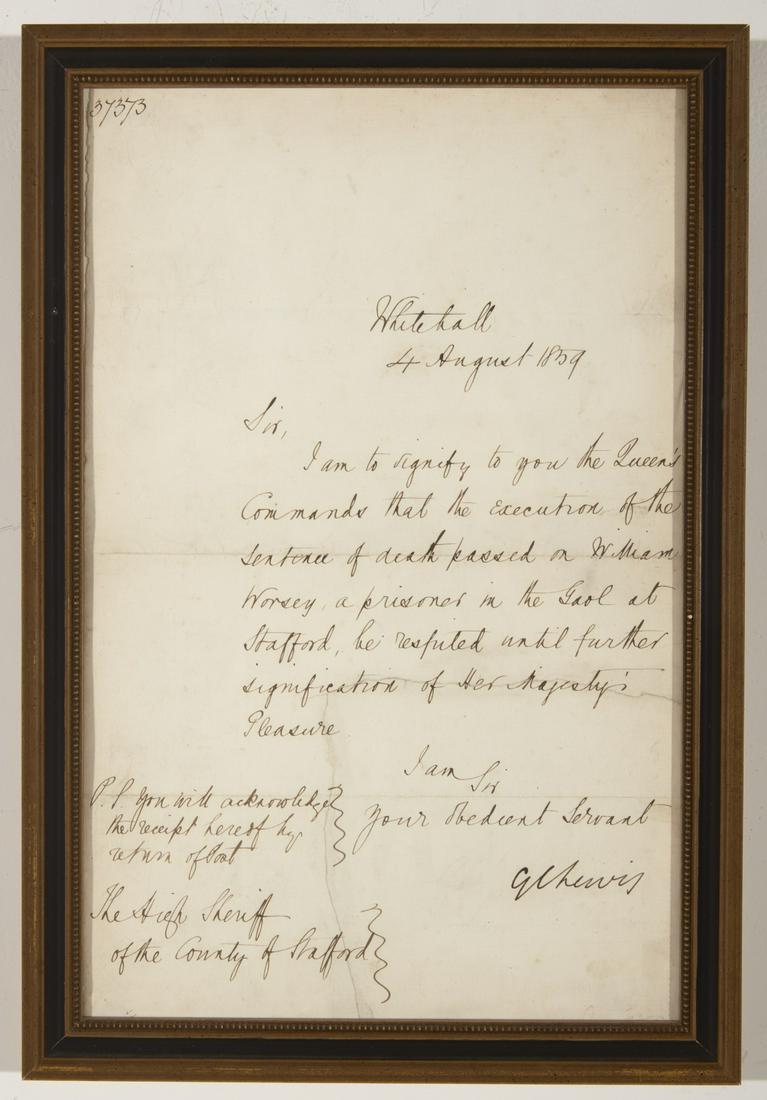 37373
Whitehall
4 August 1859
Sir,
I am to signify to you the Queen's
Commands that the execution of the
sentence of death passed on William
Worsey, a prisoner in the Gaol at
Stafford, be respited until further
signification of Her Majesty's
Pleasure
I am Sir
Your obedient Servant
G C Lewis
P.S. You will acknowledge
the receipt hereof by
return of Post
The High Sheriff
of the County of Stafford